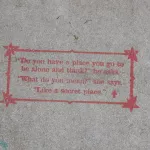 "Do you have a place you go to
be alone and think?" he asks.
"What do you mean?" she says.
"Like a secret place."